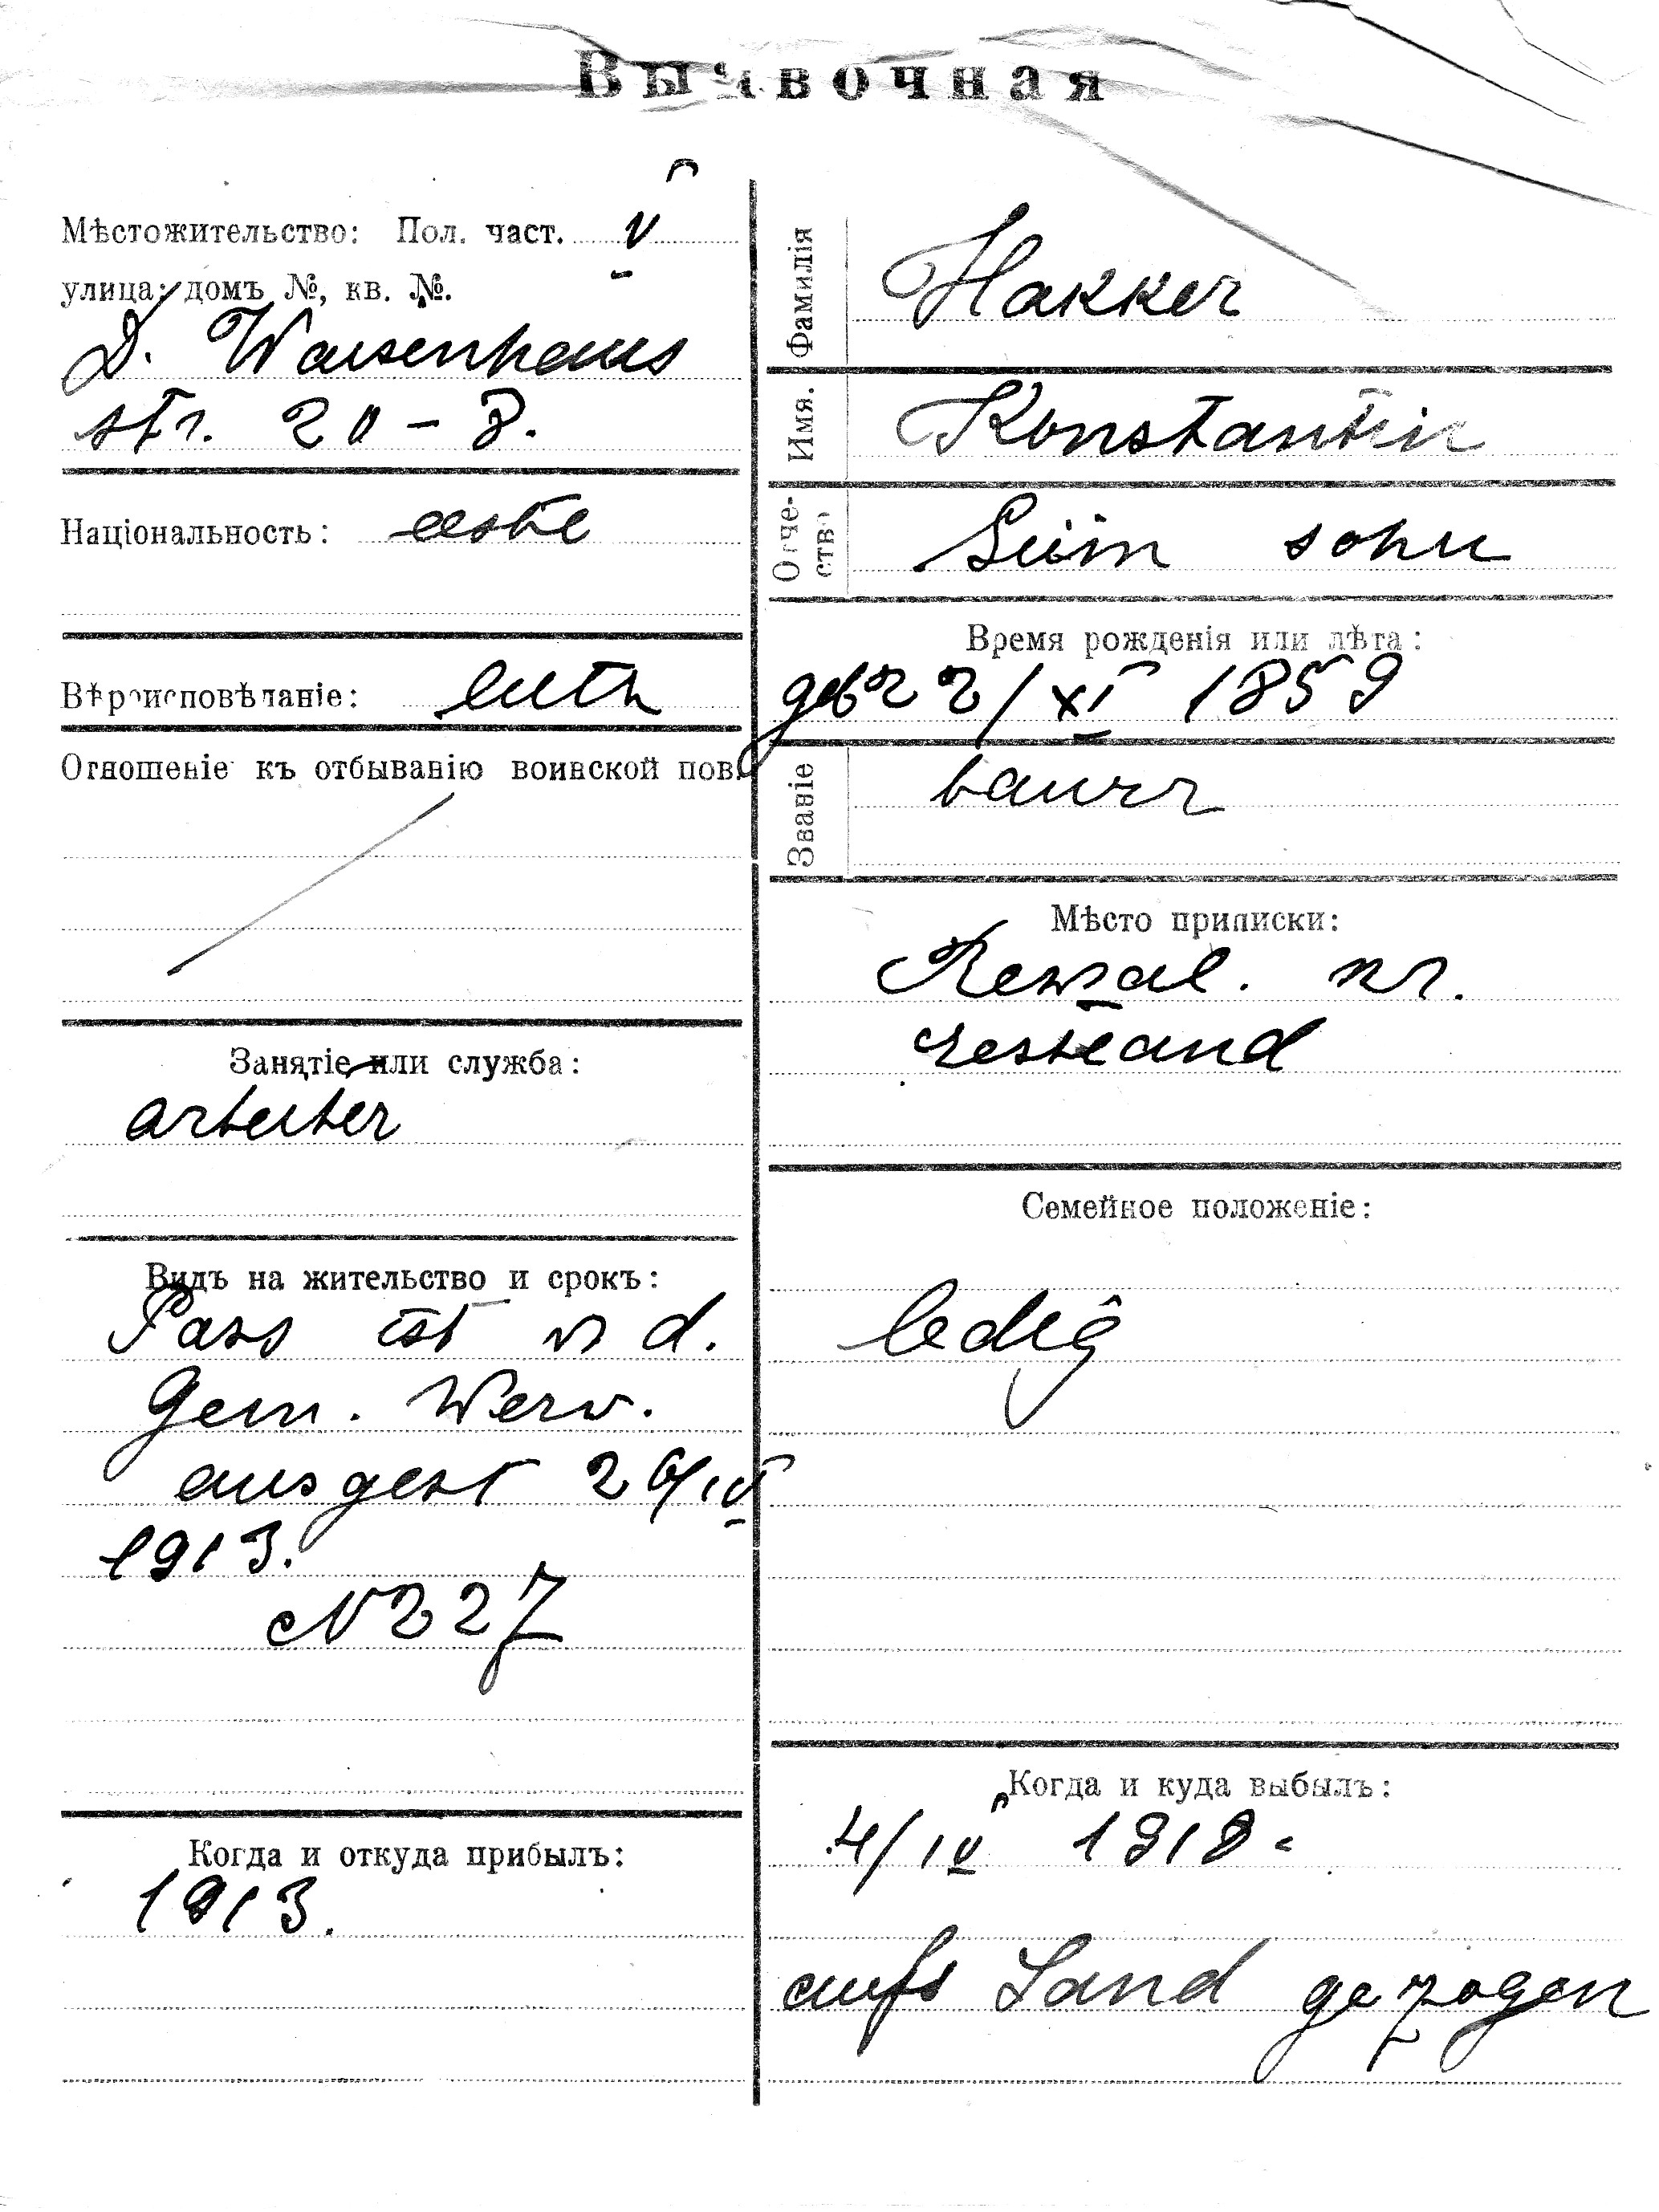 Выѣвочная
Мѣстожительство: Пол. част. V
улица, домъ №, кв. №.
D. Waisenhaus
str. 20 - 8.
Національность: aeste
Вѣроисповѣданіе: luth
Отношеніе къ отбыванію воинской пов.
Занятіе или служба:
arbeiter
Видъ на жительство и срокъ:
Pass ist v d.
Gem. Werw.
ausgest 26/IV
1913.
N 227
Когда и откуда прибылъ:
1913.
Фамилія Hakker
Имя. Konstantin
Отче-ство Siim sohn
Время рожденія или лѣта:
geb 22/XI 1859
Званіе bauer
Мѣсто приписки:
Rewal. kr.
Семейное положеніе:
ledig
Когда и куда выбылъ:
4/IV 1918.
aufs Land gezogen